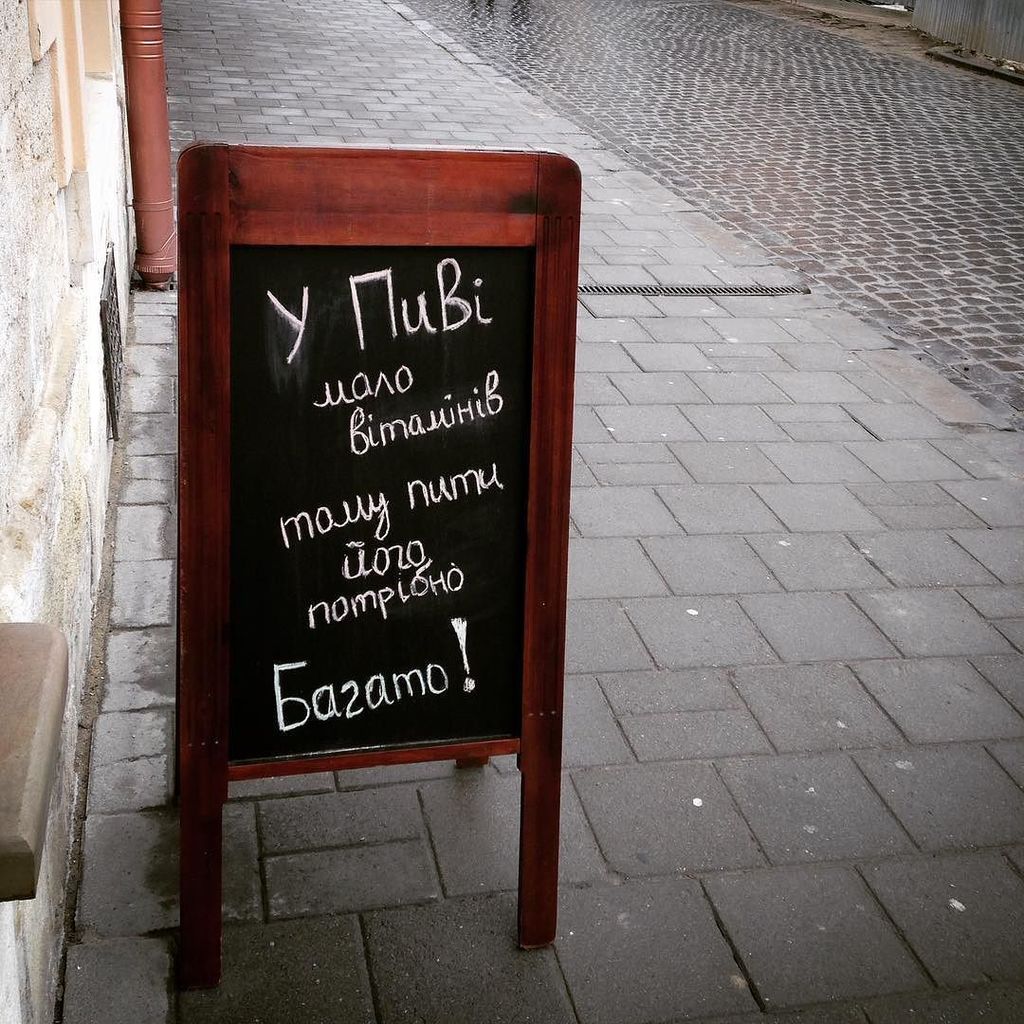 У Пиві
мало
вітамінів
тому пити
його
потрібно
Багато!